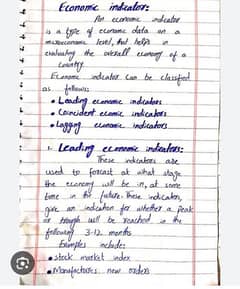 Economic indicators:
An economic indicator
is a type of economic data on a
microeconomic level, that helps in
evaluating the overall economy of a
country.
Economic indicator can be classified
as follows:
• Leading economic indicators
• Coincident economic indicators
• Lagging economic indicators
1. Leading economic indicators:
These indicators are
used to forcast at what stage
the economy will be in, at some
time in the future. These indicators,
give an indication for whether a peak
or trough will be reached in the
following 3-12 months
Examples includes:
• stock market index
• Manufacturers new orders